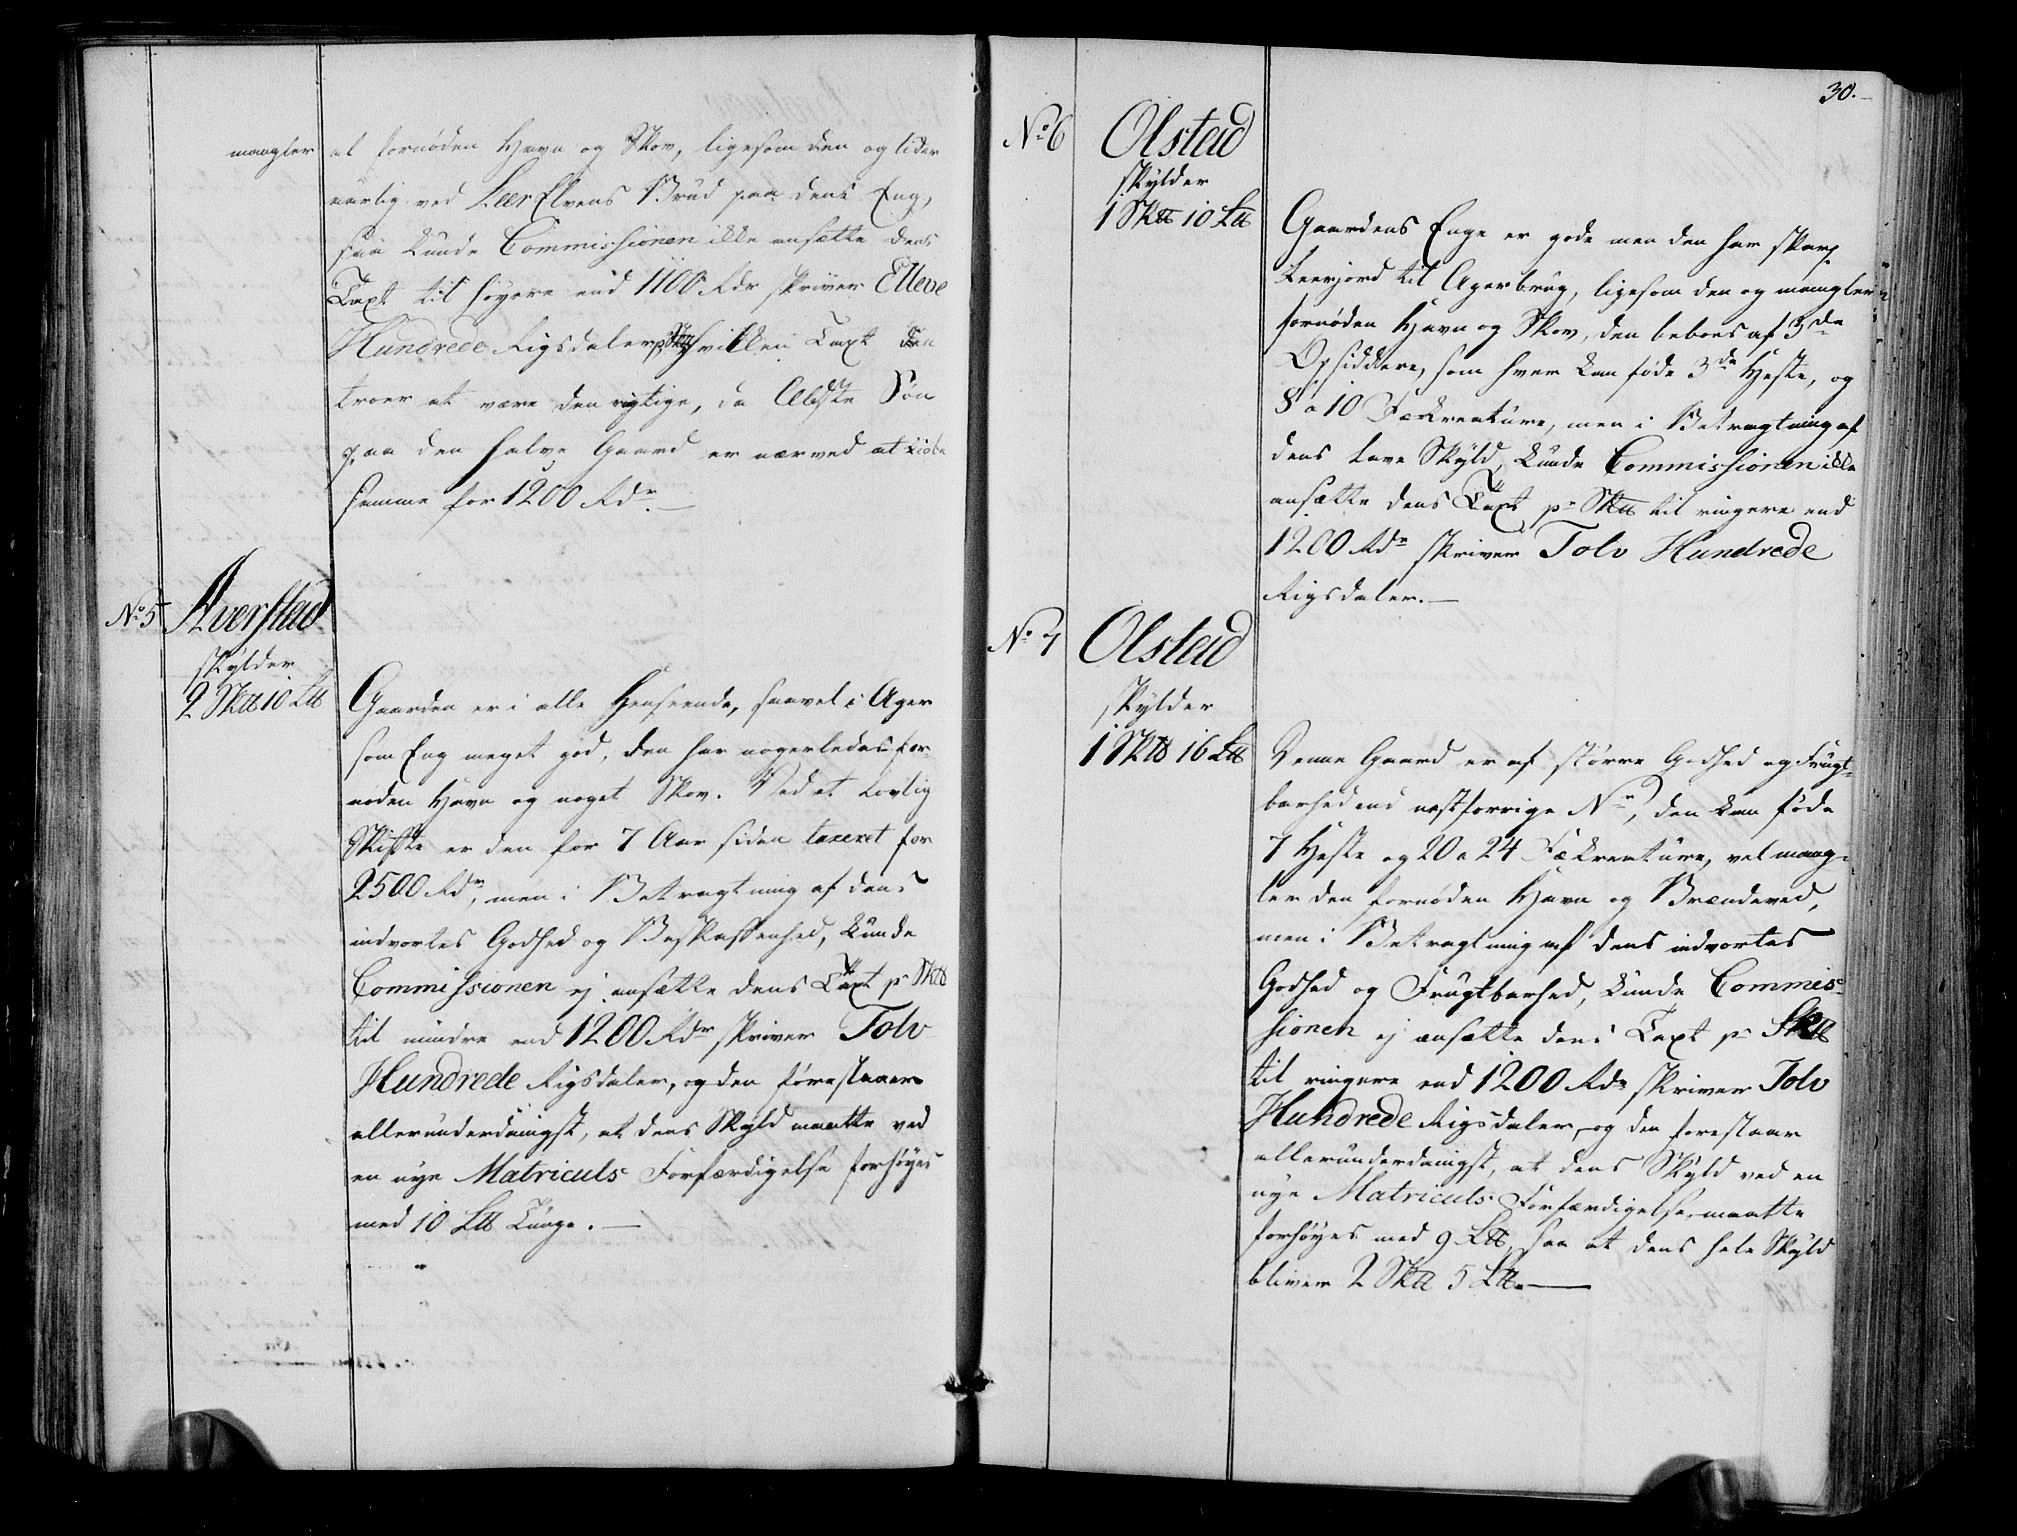 mangler at fornøden Havn og Skov, ligesom den og lider
aarlig ved Leer Elvens Brud paa dens Eng,
saa kunde Commissionen ikke ansætte dens
Taxt til høyere end 1100 Rdr skriver Elleve
Hundrede Rigsdaler pr Sk℔ hvilken Taxt den
troer at være den rigtige, da Ældste Søn
paa den halve Gaard er nærved at kiøbe
samme for 1200 Rdr.—
No 5
Averstad
skylder
2 Sk℔ 10 L℔
Gaarden er i alle Henseende, saavel i Ager
som Eng meget god, den har nogerledes for-
nøden Havn og noget Skov. Ved et lovlig
Skifte er den for 7 Aar siden taxeret for
2500 Rdr, men i Betragtning af dens
indvortes Godhed og Beskaffenhed, kunde
Commissionen ej ansætte dens Taxt pr Sk℔
til mindre end 1200 Rdr skriver Tolv
Hundrede Rigsdaler, og den forestaaer
allerunderdanigst, at dens Skyld maatte ved
en nye Matriculs Forfærdigelse forhøyes
med 10 L℔ Tunge.—
30.
No 6
Olstad
skylder
1 Sk℔ 10 L℔
Gaardens Enge er gode men den har skarp
Leerjord til Agerbrug, ligesom den og mangler
fornøden Havn og Skov, den beboes af 3de
Opsiddere, som hver kan føde 3de Heste, og
8 a 10 Fækreature, men i Betragtning af
dens lave Skyld, kunde Commissionen ikke
ansætte dens Taxt pr Sk℔ til ringere end
1200 Rdr skriver Tolv Hundrede
Rigsdaler.—
No 7
Olstad
skylder
1 Sk℔ 16 L℔
Denne Gaard er af større Godhed og Frugt-
barhed end nestforrige Nr, den kan føde
7 Heste og 20 a 24 Fækreature, vel mang-
ler den fornøden Havn og Brændeved,
men i Betragtning af dens indvortes
Godhed og Frugtbarhed, kunde Commis-
sionen ej ansætte dens Taxt pr Sk℔
til ringere end 1200 Rdr skriver Tolv
Hundrede Rigsdaler, og den forestaar
allerunderdanigst, at dens Skyld ved en
nye Matriculs Forfærdigelse, maatte
forhøyes med 9 L℔, saa at dens hele Skyld
bliver 2 Sk℔ 5 L℔.—